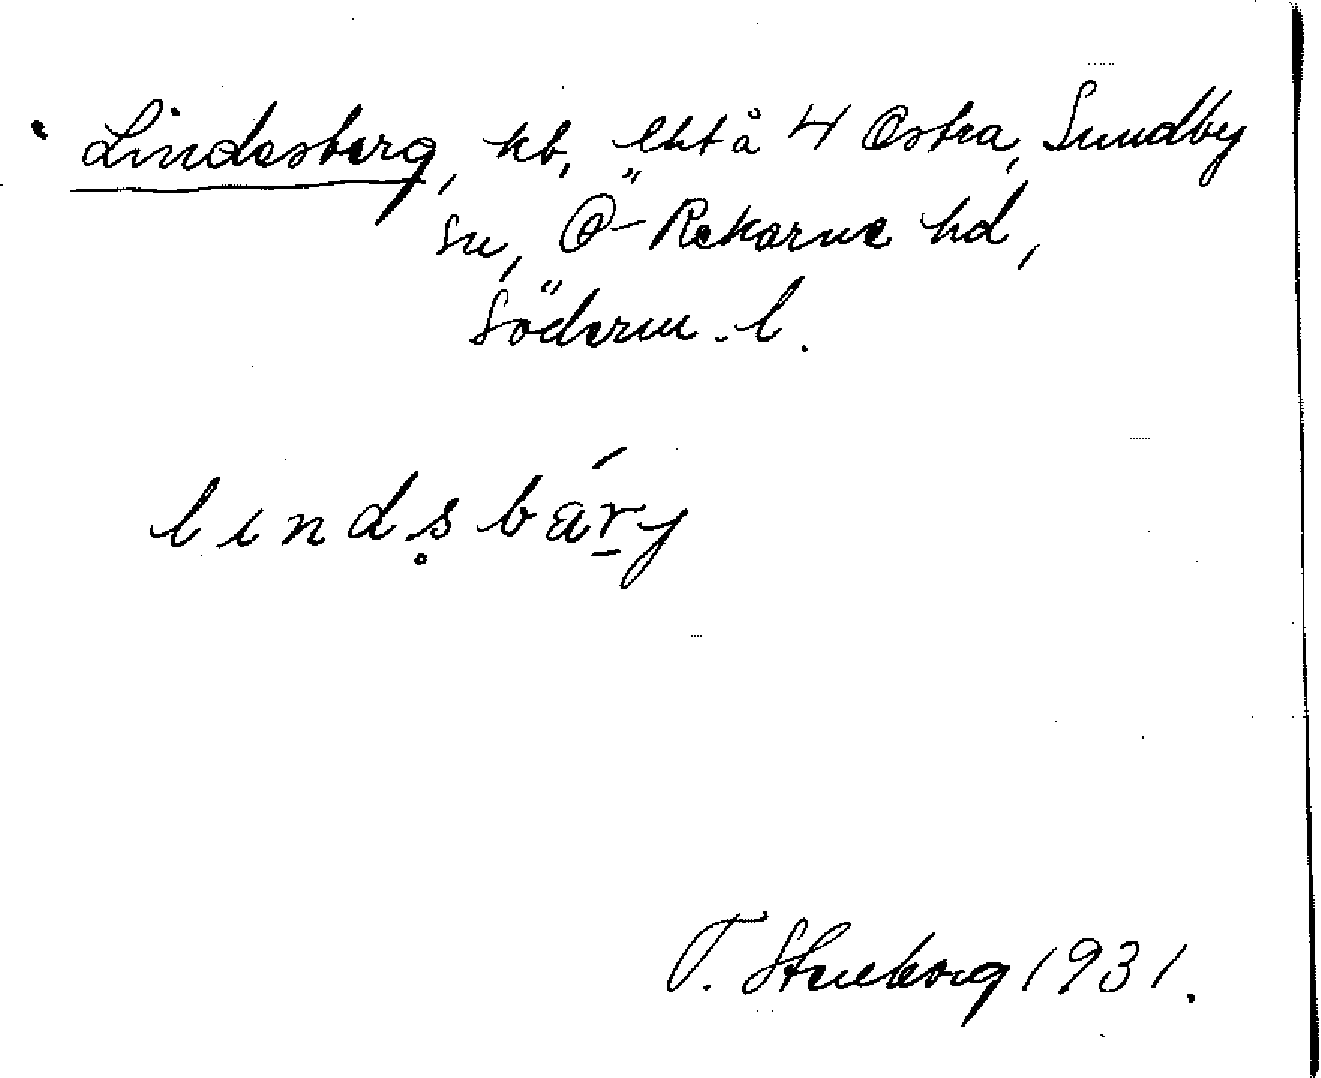 Lindesberg, kb, lht å 4 Östra, Sundby
sn, Ö-Rekarne hd,
Söderm. l.
lındsbáry
T. Stenborg 1931.